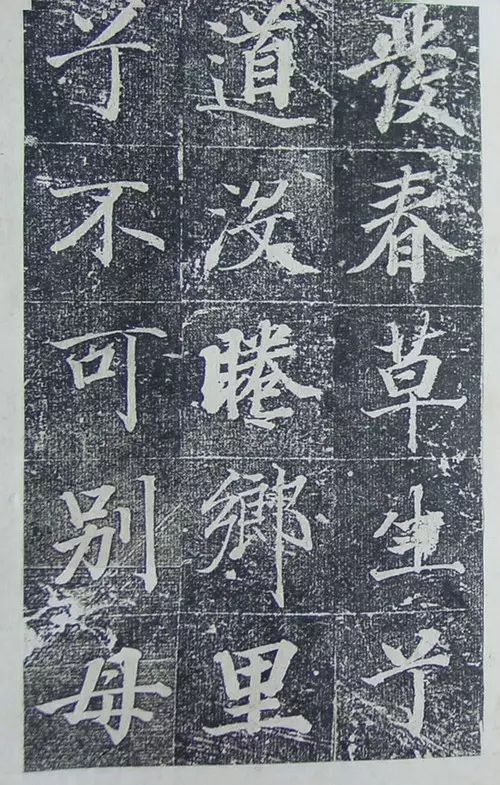 發春草生兮
道没睠鄉里
兮不可别毋